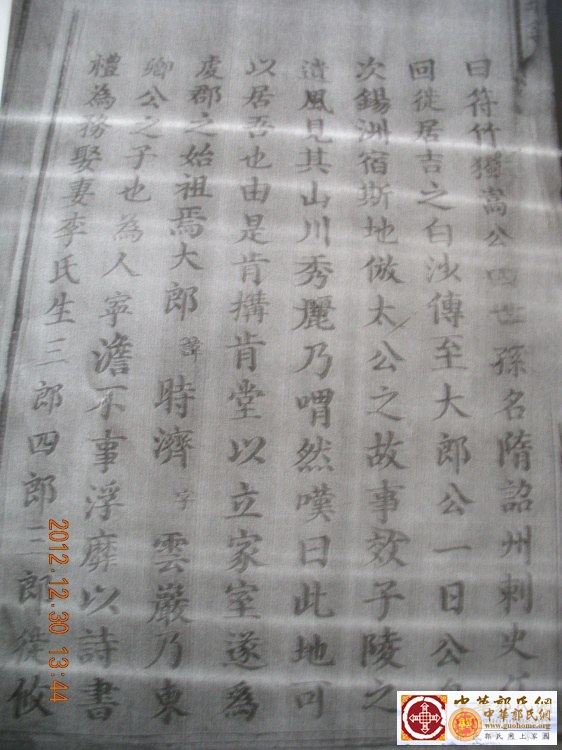 曰符竹猶嵩公四世孫名隋詔州刺史
回徙居吉之白沙傳至大郎公一日公
次錫洲宿斯地倣太公之故事效子陵之
遺風見其山川秀麗乃喟然嘆曰此地可
以居吾也由是肯搆肯堂以立家室遂為
虔郡之始祖焉大郎諱時濟字雲巖乃東
卿公之子也為人寧澹不事浮靡以詩書
禮為務娶妻李氏生三郎四郎三郎徙攸
2012.12.30 13:44
中華郭氏網
中華郭氏網
www.guohome.org
郭氏网上家園